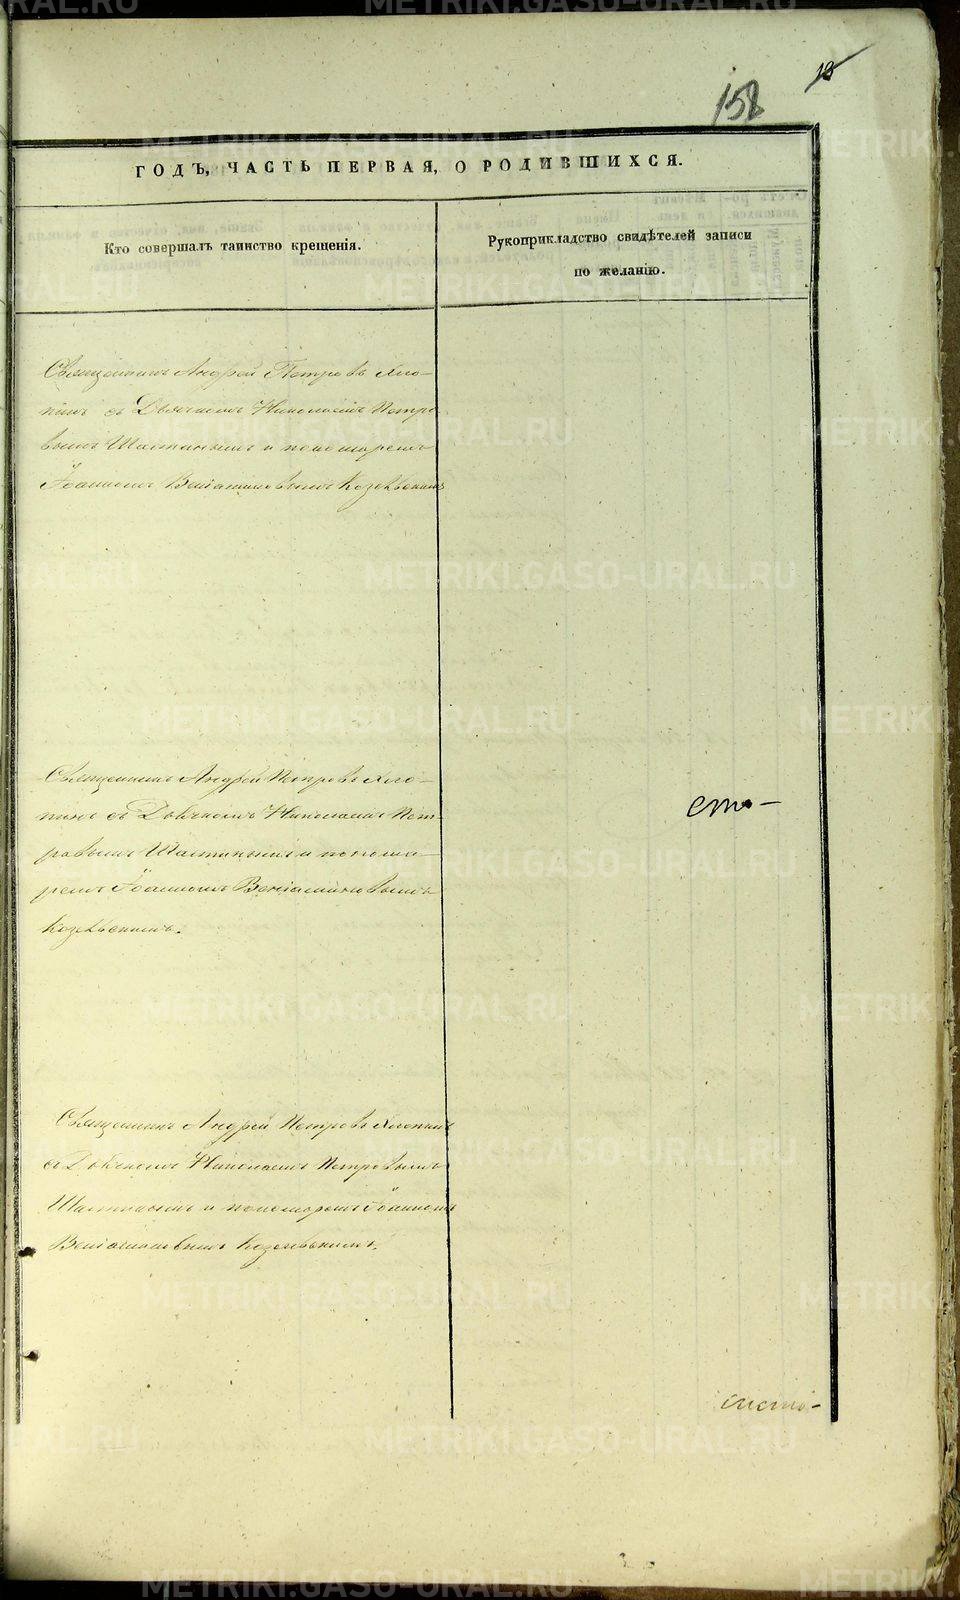 13
158
ГОДЪ, ЧАСТЬ ПЕРВАЯ, О РОДИВШИХСЯ.
Кто совершалъ таинство крещенія.
Рукоприкладство свидѣтелей записи
по желанію.
Священникъ Андрей Петровъ Хло-
пинъ съ Дьячкомъ Николаемъ Петро
вымъ Шастинымъ и пономаремъ
Іоанномъ Веніаминовымъ
Священникъ Андрей Петровъ Хло-
пинъ съ Дьячкомъ Николаемъ Пет-
ровымъ Шастинымъ и понома-
ремъ Іоанномъ Веніаминовымъ
Священникъ Андрей Петровъ Хлопинъ
съ Дьячкомъ Николаемъ Петровымъ
Шастинымъ и пономаремъ Іоанномъ
Веніаминовымъ
METRIKI.GASO-URAL.RU